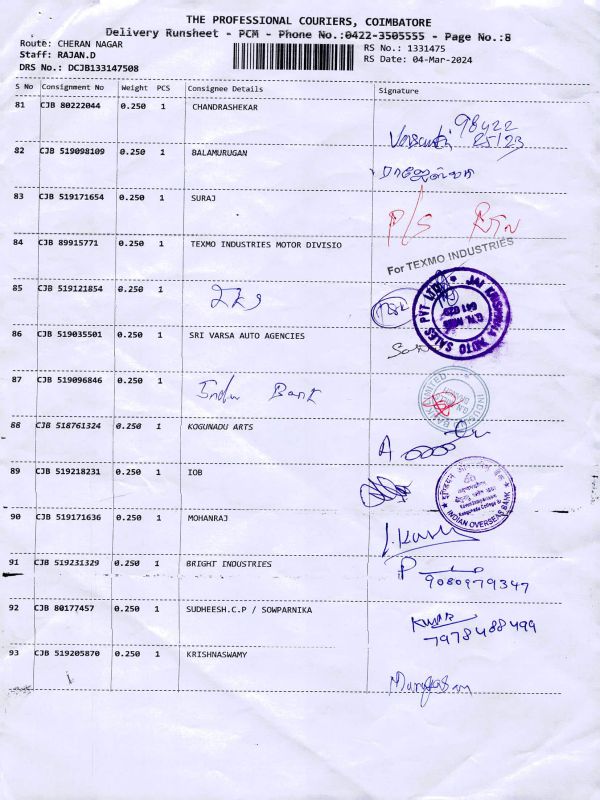 THE PROFESSIONAL COURIERS, COIMBATORE
Delivery Runsheet - PCM - Phone No.:0422-3505555 - Page No.:8
Route: CHERAN NAGAR RS No.: 1331475
Staff: RAJAN.D RS Date: 04-Mar-2024
DRS No.: DCJB133147508
S No Consignment No Weight PCS Consignee Details Signature
81 CJB 80222044 0.250 1 CHANDRASHEKAR
98422
25123
82 CJB 519098109 0.250 1 BALAMURUGAN
83 CJB 519171654 0.250 1 SURAJ
P/S RTN
84 CJB 89915771 0.250 1 TEXMO INDUSTRIES MOTOR DIVISIO
For TEXMO INDUSTRIES
85 CJB 519121854 0.250 1
JAI KRISHNA AUTO SALES PVT LTD
86 CJB 519035501 0.250 1 SRI VARSA AUTO AGENCIES
87 CJB 519096846 0.250 1 Indu Bank
88 CJB 518761324 0.250 1 KOGUNADU ARTS
89 CJB 519218231 0.250 1 IOB
INDIAN OVERSEAS BANK
90 CJB 519171636 0.250 1 MOHANRAJ
91 CJB 519231329 0.250 1 BRIGHT INDUSTRIES
9080979347
92 CJB 80177457 0.250 1 SUDHEESH.C.P / SOWPARNIKA
Kumar
7978488499
93 CJB 519205870 0.250 1 KRISHNASWAMY